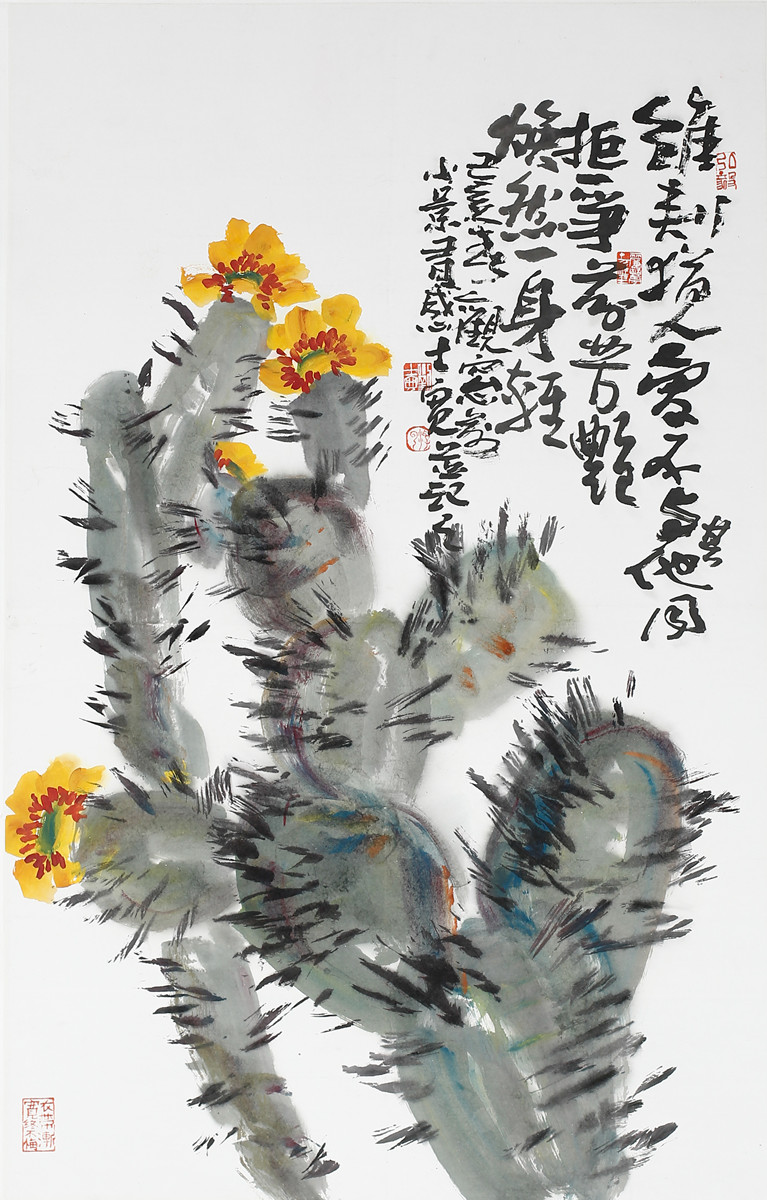 雖刺猶人愛不與其他同
拒爭芬芳艷
煥然一身輕
己亥春之觀窓前
小景有感士寬並記之